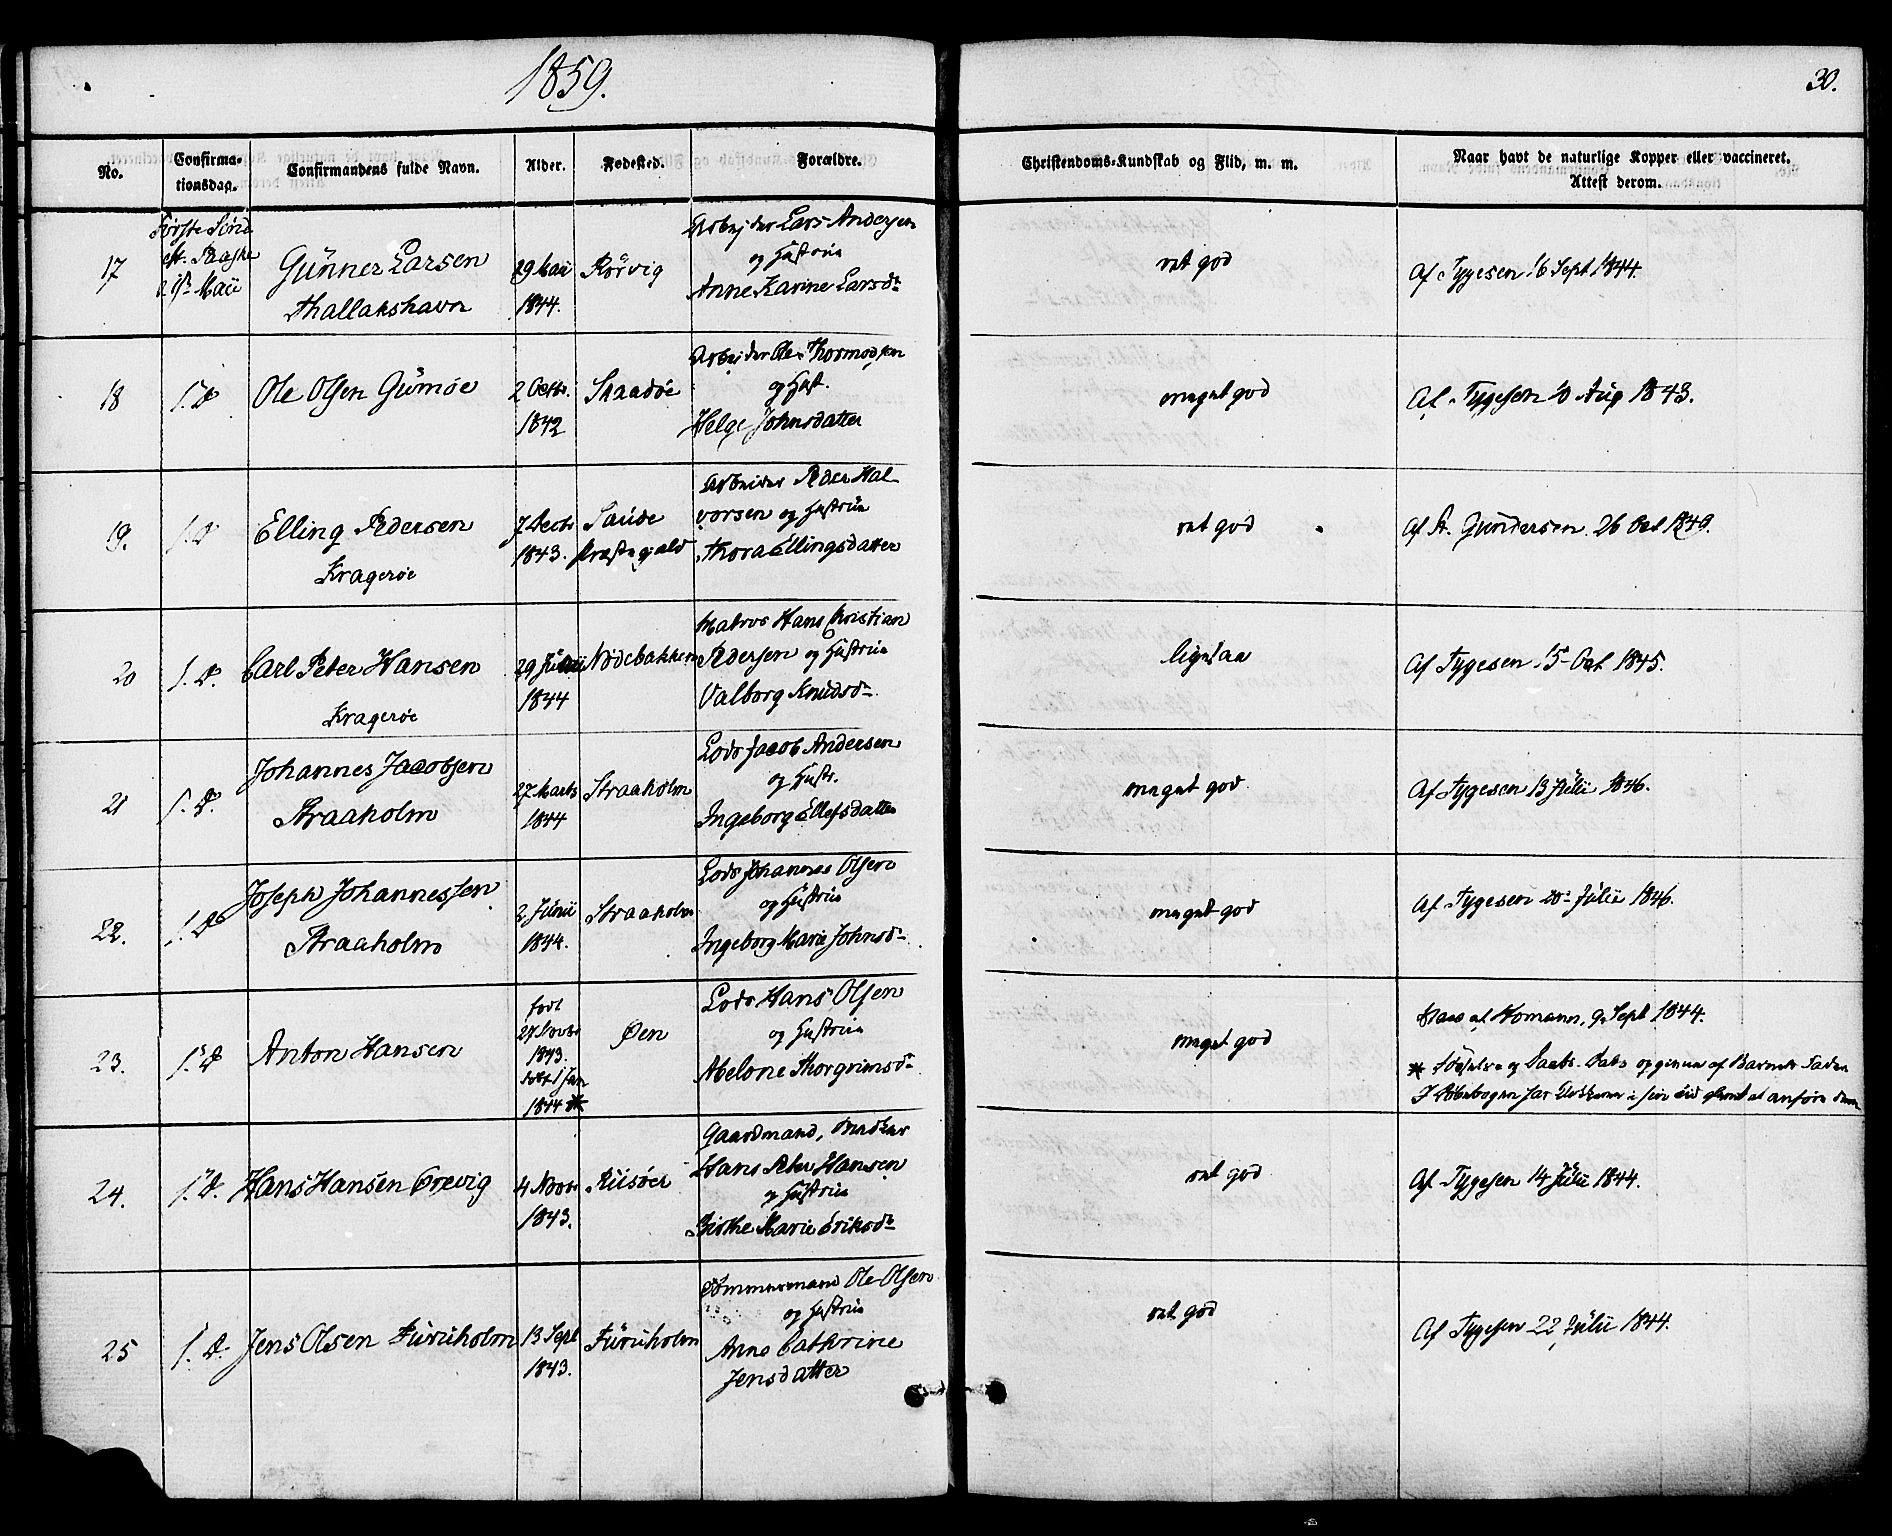 1859.
30.
No.
Confirma-
tionsdag.
Confirmandens fulde Navn.
Alder.
Fødested.
Forældre.
Christendoms-Kundskab og Flid, m. m.
Naar havt de naturlige Kopper eller vaccineret.
Attest derom.
17
Første Sønd
eft. Paaske
1ste Maii
Gunner Larsen
Thallakshavn
29 Maii
1844.
Rörvig
Arbejder Lars Andersen
og Hustrue
Anne Karine Larsdr
ret god
Af Tygesen 16 Sept 1844.
18
s. D
Ole Olsen Gumøe
2 Octbr.
1842
Skaadøe
Arbejder Ole Thormodsen
og Hust.
Helge Johnsdatter
meget god
Af Tygesen 10 Aug 1843.
19.
s. D
Elling Pedersen
Kragerøe
7 Decbr
1843.
Saude
Præstegjæld
Arbeider Peder Hal-
vorsen og Hustrue
Thora Ellingsdatter
ret god
af A. Gundersen 26 Oct 1849.
20
s. D.
Carl Peter Hansen
Kragerøe
29
1844
Nødebakken
Matros Hans Christian
Pedersen og Hustrue
Valborg Knudsdr.
ligesaa
Af Tygesen 15 Oct 1845.
21
s. D.
Johannes Jacobsen
Straaholm
27 Marts
1844
Straaholm
Lods Jacob Andersen
og Hustr.
Ingeborg Ellefsdatter
meget god.
Af Tygesen 13 Julii 1846.
22.
s. D
Joseph Johannessen
Straaholm
2 Junii
1844.
Straaholm
Lods Johannes Olsen
og Hustrue
Ingeborg Marie Johnsdr
meget god
Af Tygesen 20 Julii 1846.
23.
s. D
Anton Hansen
født
27 Novbr
1843.
døbt 1 Jan
1844 *
Øen
Lods Hans Olsen
og Hustrue
Abelone Thorgrimsdr
meget god
af Homann, 9 Sept 1844.
* Fødselse og Daabs-Data opgivne af Barnets Fader
I Døbebogen har Klokkeren i sin tid glemt at anføre dem
24.
s. D.
Hans Hansen Orevig
4 Novbr
1843.
Riisøer
Gaardmand,
Hans Peter Hansen
og Hustrue
Birthe Marie Eriksdr
ret god
Af Tygesen 14 Julii 1844.
25
s. D.
Jens Olsen Furuholm
13 Sept
1843.
Furuholm
Tømmermand Ole Olsen
og Hustrue
Anne Cathrine
Jensdatter
ret god
Af Tygesen 22 Julii 1844.